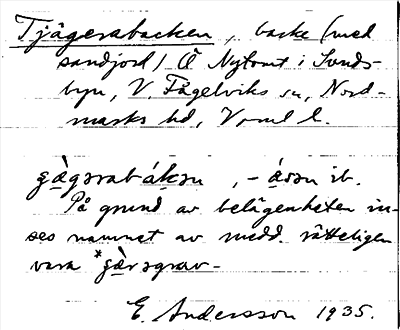 Tjägerabacken, backe (med
sandjord) Ö Nytomt i Sunds-
byn, V. Fågelviks sn, Nord-
marks hd, Vrml l.
gä̀gərabákən, -ásən ib.
På grund av belägenheten in-
ses namnet av medd. rätteligen
vara *gä̀rəgrav-
E. Andersson 1935.